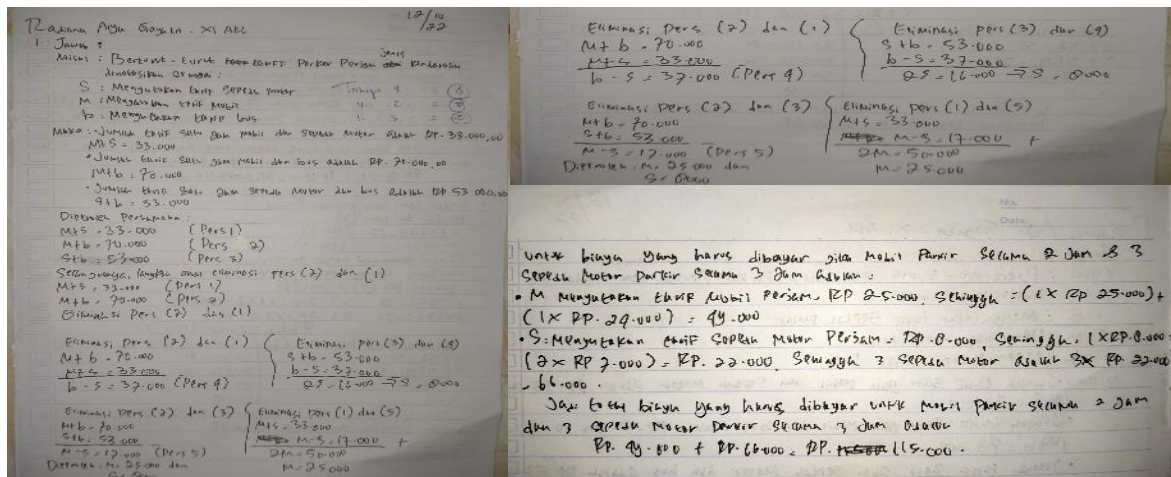 12/10/22
XI AKL
1. Jawab :
Misal : Berturut-turut tarif Parkir Perjam jenis kendaraan
dinotasikan sebagai :
S : Menyatakan tarif sepeda motor
M : Menyatakan tarif mobil
b : Menyatakan tarif bus
Maka : Jumlah tarif satu jam mobil dan sepeda motor adalah RP. 33.000,00
M+S = 33.000
• Jumlah tarif satu jam mobil dan bus adalah RP. 70.000,00
M+b = 70.000
• Jumlah tarif satu jam sepeda motor dan bus adalah RP 53.000,00
S+b = 53.000
Diperoleh Persamaan :
M+S = 33.000 (Pers 1)
M+b = 70.000 (Pers 2)
S+b = 53.000 (Pers 3)
Selanjutnya, langkah eliminasi pers (2) dan (1)
M+S = 33.000 (Pers 1)
M+b = 70.000 (Pers 2)
Eliminasi Pers (2) dan (1)
Eliminasi Pers (2) dan (1)
M+b = 70.000
M+S = 33.000
b-S = 37.000 (Pers 4)
Eliminasi pers (3) dan (4)
S+b = 53.000
b-S = 37.000
2S = 16.000 → S = 8000
Eliminasi Pers (2) dan (3)
M+b = 70.000
S+b = 53.000
M-S = 17.000 (Pers 5)
Diperoleh : M = 25.000 dan
Eliminasi Pers (1) dan (5)
M+S = 33.000
M-S = 17.000 +
2M = 50.000
M = 25.000
Eliminasi Pers (2) dan (1)
M+b = 70.000
M+S = 33.000
b-S = 37.000 (Pers 4)
Eliminasi pers (3) dan (4)
S+b = 53.000
b-S = 37.000
2S = 16.000 → S = 8000
Eliminasi Pers (2) dan (3)
M+b = 70.000
S+b = 53.000
M-S = 17.000 (Pers 5)
Diperoleh : M = 25.000 dan
S = 8000
Eliminasi Pers (1) dan (5)
M+S = 33.000
M-S = 17.000 +
2M = 50.000
M = 25.000
No.
Date
untuk biaya yang harus dibayar jika mobil Parkir selama 2 Jam & 3
sepeda motor parkir selama 3 Jam adalah :
• M menyatakan tarif mobil perjam, RP 25.000, sehingga = (1 x RP 25.000) +
(1 x RP. 24.000) = 49.000
• S : Menyatakan tarif sepeda motor Perjam = RP. 8.000, sehingga. 1 x RP. 8.000
(2 x RP 7.000) = RP. 22.000 sehingga 3 sepeda motor adalah 3x RP. 22.000
= 66.000.
Jadi total biaya yang harus dibayar untuk mobil Parkir selama 2 Jam
dan 3 sepeda motor parkir selama 3 Jam adalah
RP. 49.000 + RP. 66.000 = RP. 115.000.